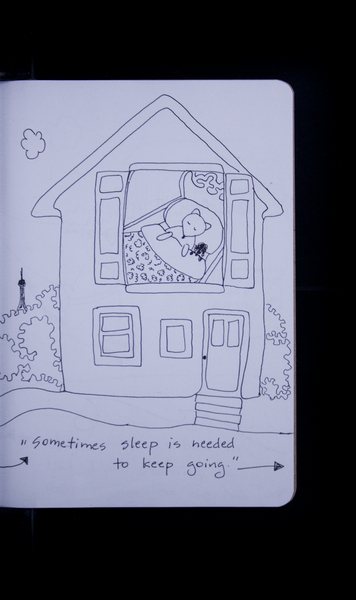 „Sometimes sleep is needed
to keep going."